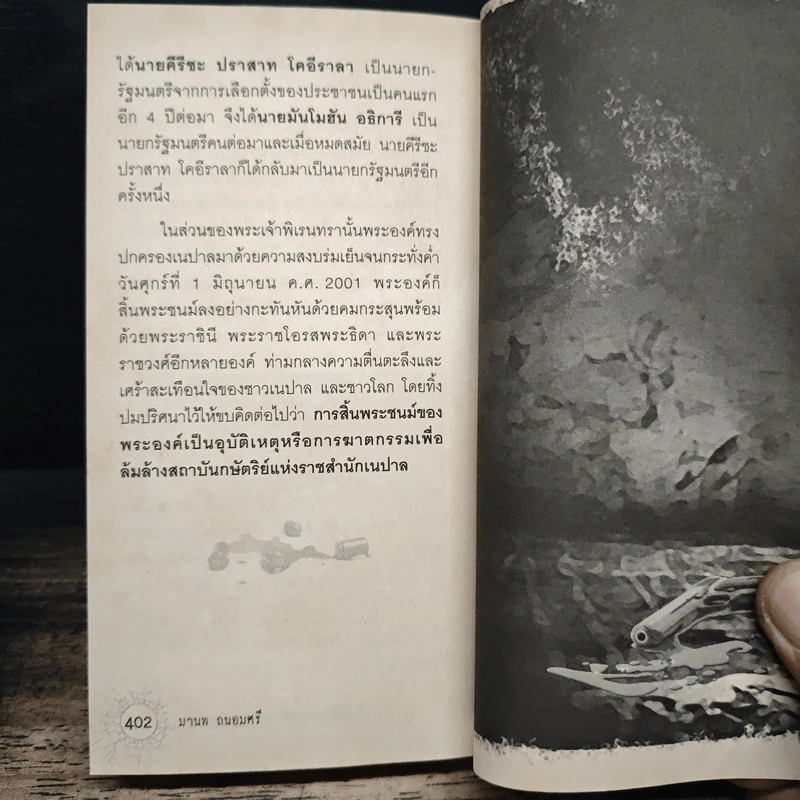 ได้นายคีรีชะ ปราสาท โคอีราลา เป็นนายก-
รัฐมนตรีจากการเลือกตั้งของประชาชนเป็นคนแรก
อีก 4 ปีต่อมา จึงได้นายมันโมฮัน อธิการี เป็น
นายกรัฐมนตรีคนต่อมาและเมื่อหมดสมัย นายคีรีชะ
ปราสาท โคอีราลาก็ได้กลับมาเป็นนายกรัฐมนตรีอีก
ครั้งหนึ่ง
ในส่วนของพระเจ้าพิเรนทรานั้นพระองค์ทรง
ปกครองเนปาลมาด้วยความสงบร่มเย็นจนกระทั่งค่ำ
วันศุกร์ที่ 1 มิถุนายน ค.ศ. 2001 พระองค์ก็
สิ้นพระชนม์ลงอย่างกะทันหันด้วยคมกระสุนพร้อม
ด้วยพระราชินี พระราชโอรสพระธิดา และพระ
ราชวงศ์อีกหลายองค์ ท่ามกลางความตื่นตะลึงและ
เศร้าสะเทือนใจของชาวเนปาล และชาวโลก โดยทิ้ง
ปมปริศนาไว้ให้ขบคิดต่อไปว่า การสิ้นพระชนม์ของ
พระองค์เป็นอุบัติเหตุหรือการฆาตกรรมเพื่อ
ล้มล้างสถาบันกษัตริย์แห่งราชสำนักเนปาล
402 มานพ ถนอมศรี